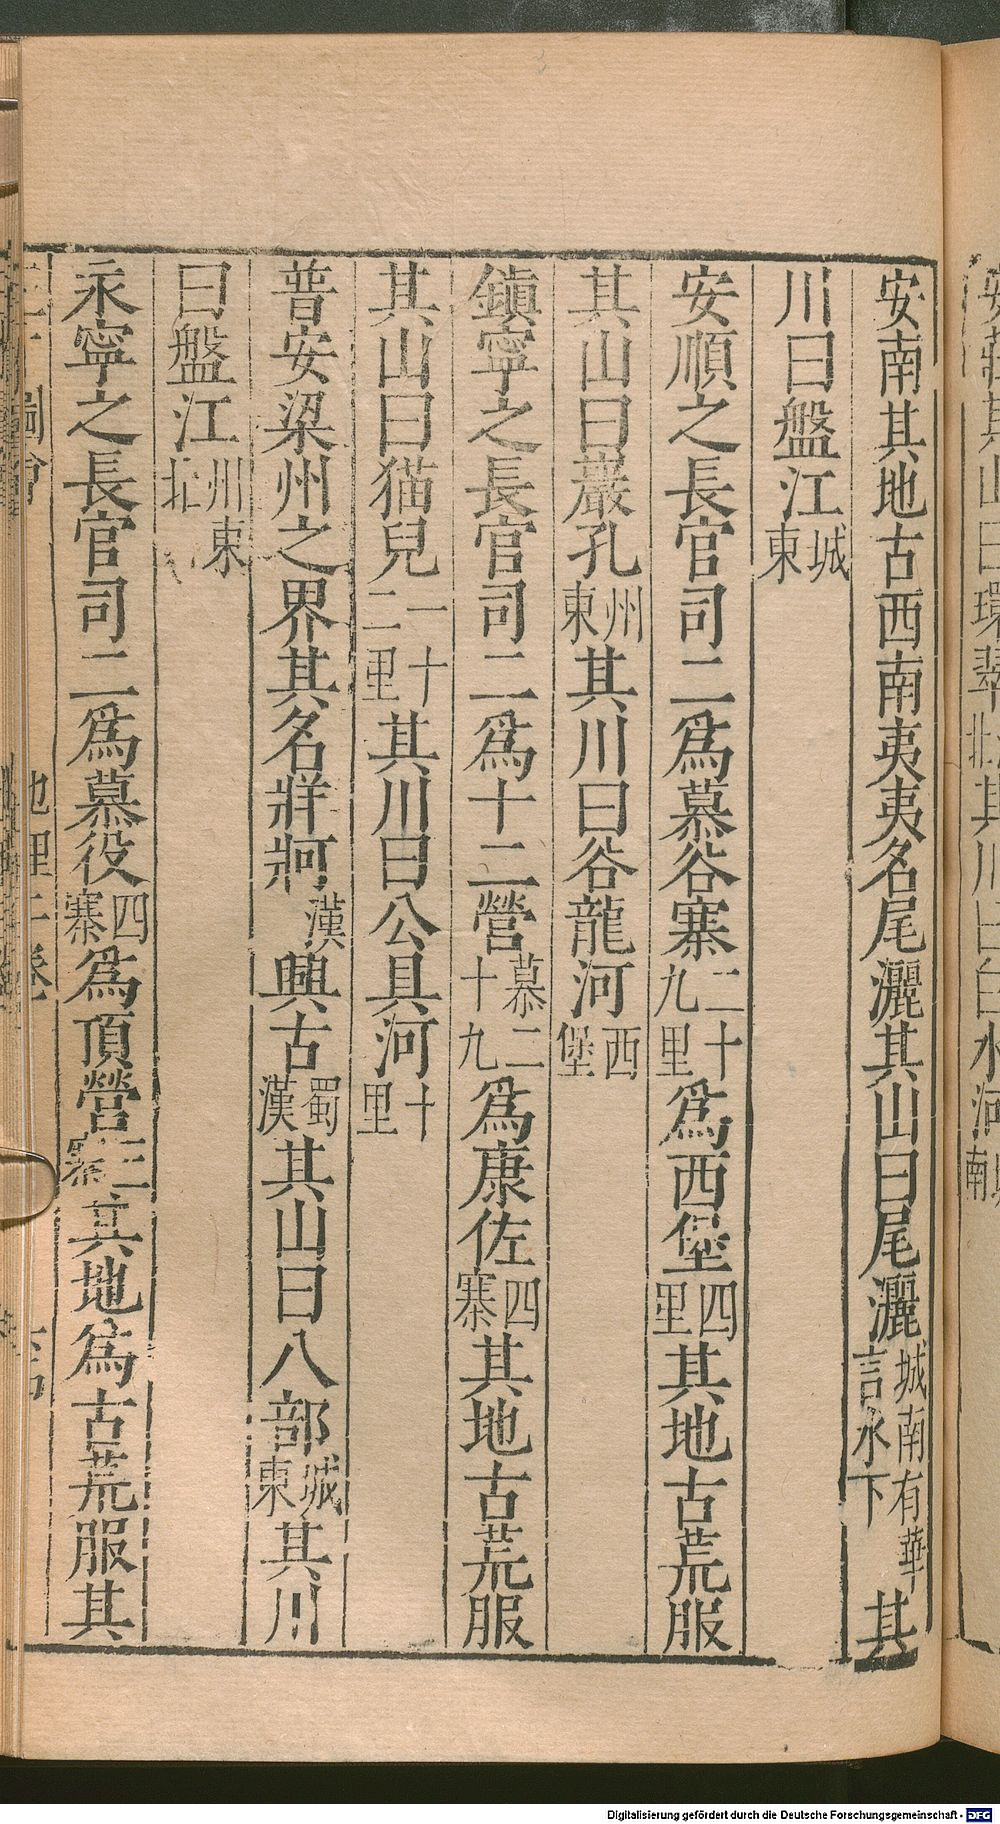 安南其地古西南夷夷名尾灑其山曰尾灑城南有華言水下其
川曰盤江城東
安順之長官司二為慕谷寨二十九里為西堡四里其地古荒服
其山曰巖孔州東其川曰谷龍河西堡
鎮寧之長官司二為十二營慕二十九為康佐四寨其地古荒服
其山曰猫兒一十二里其川曰公具河十里
普安梁州之界其名牂牁漢興古蜀漢其山曰八部城東其川
曰盤江州東北
永寧之長官司二為慕役四寨為頂營三寨其地為古荒服其
地理 卷
Digitalisierung gefördert durch die Deutsche Forschungsgemeinschaft - DFG